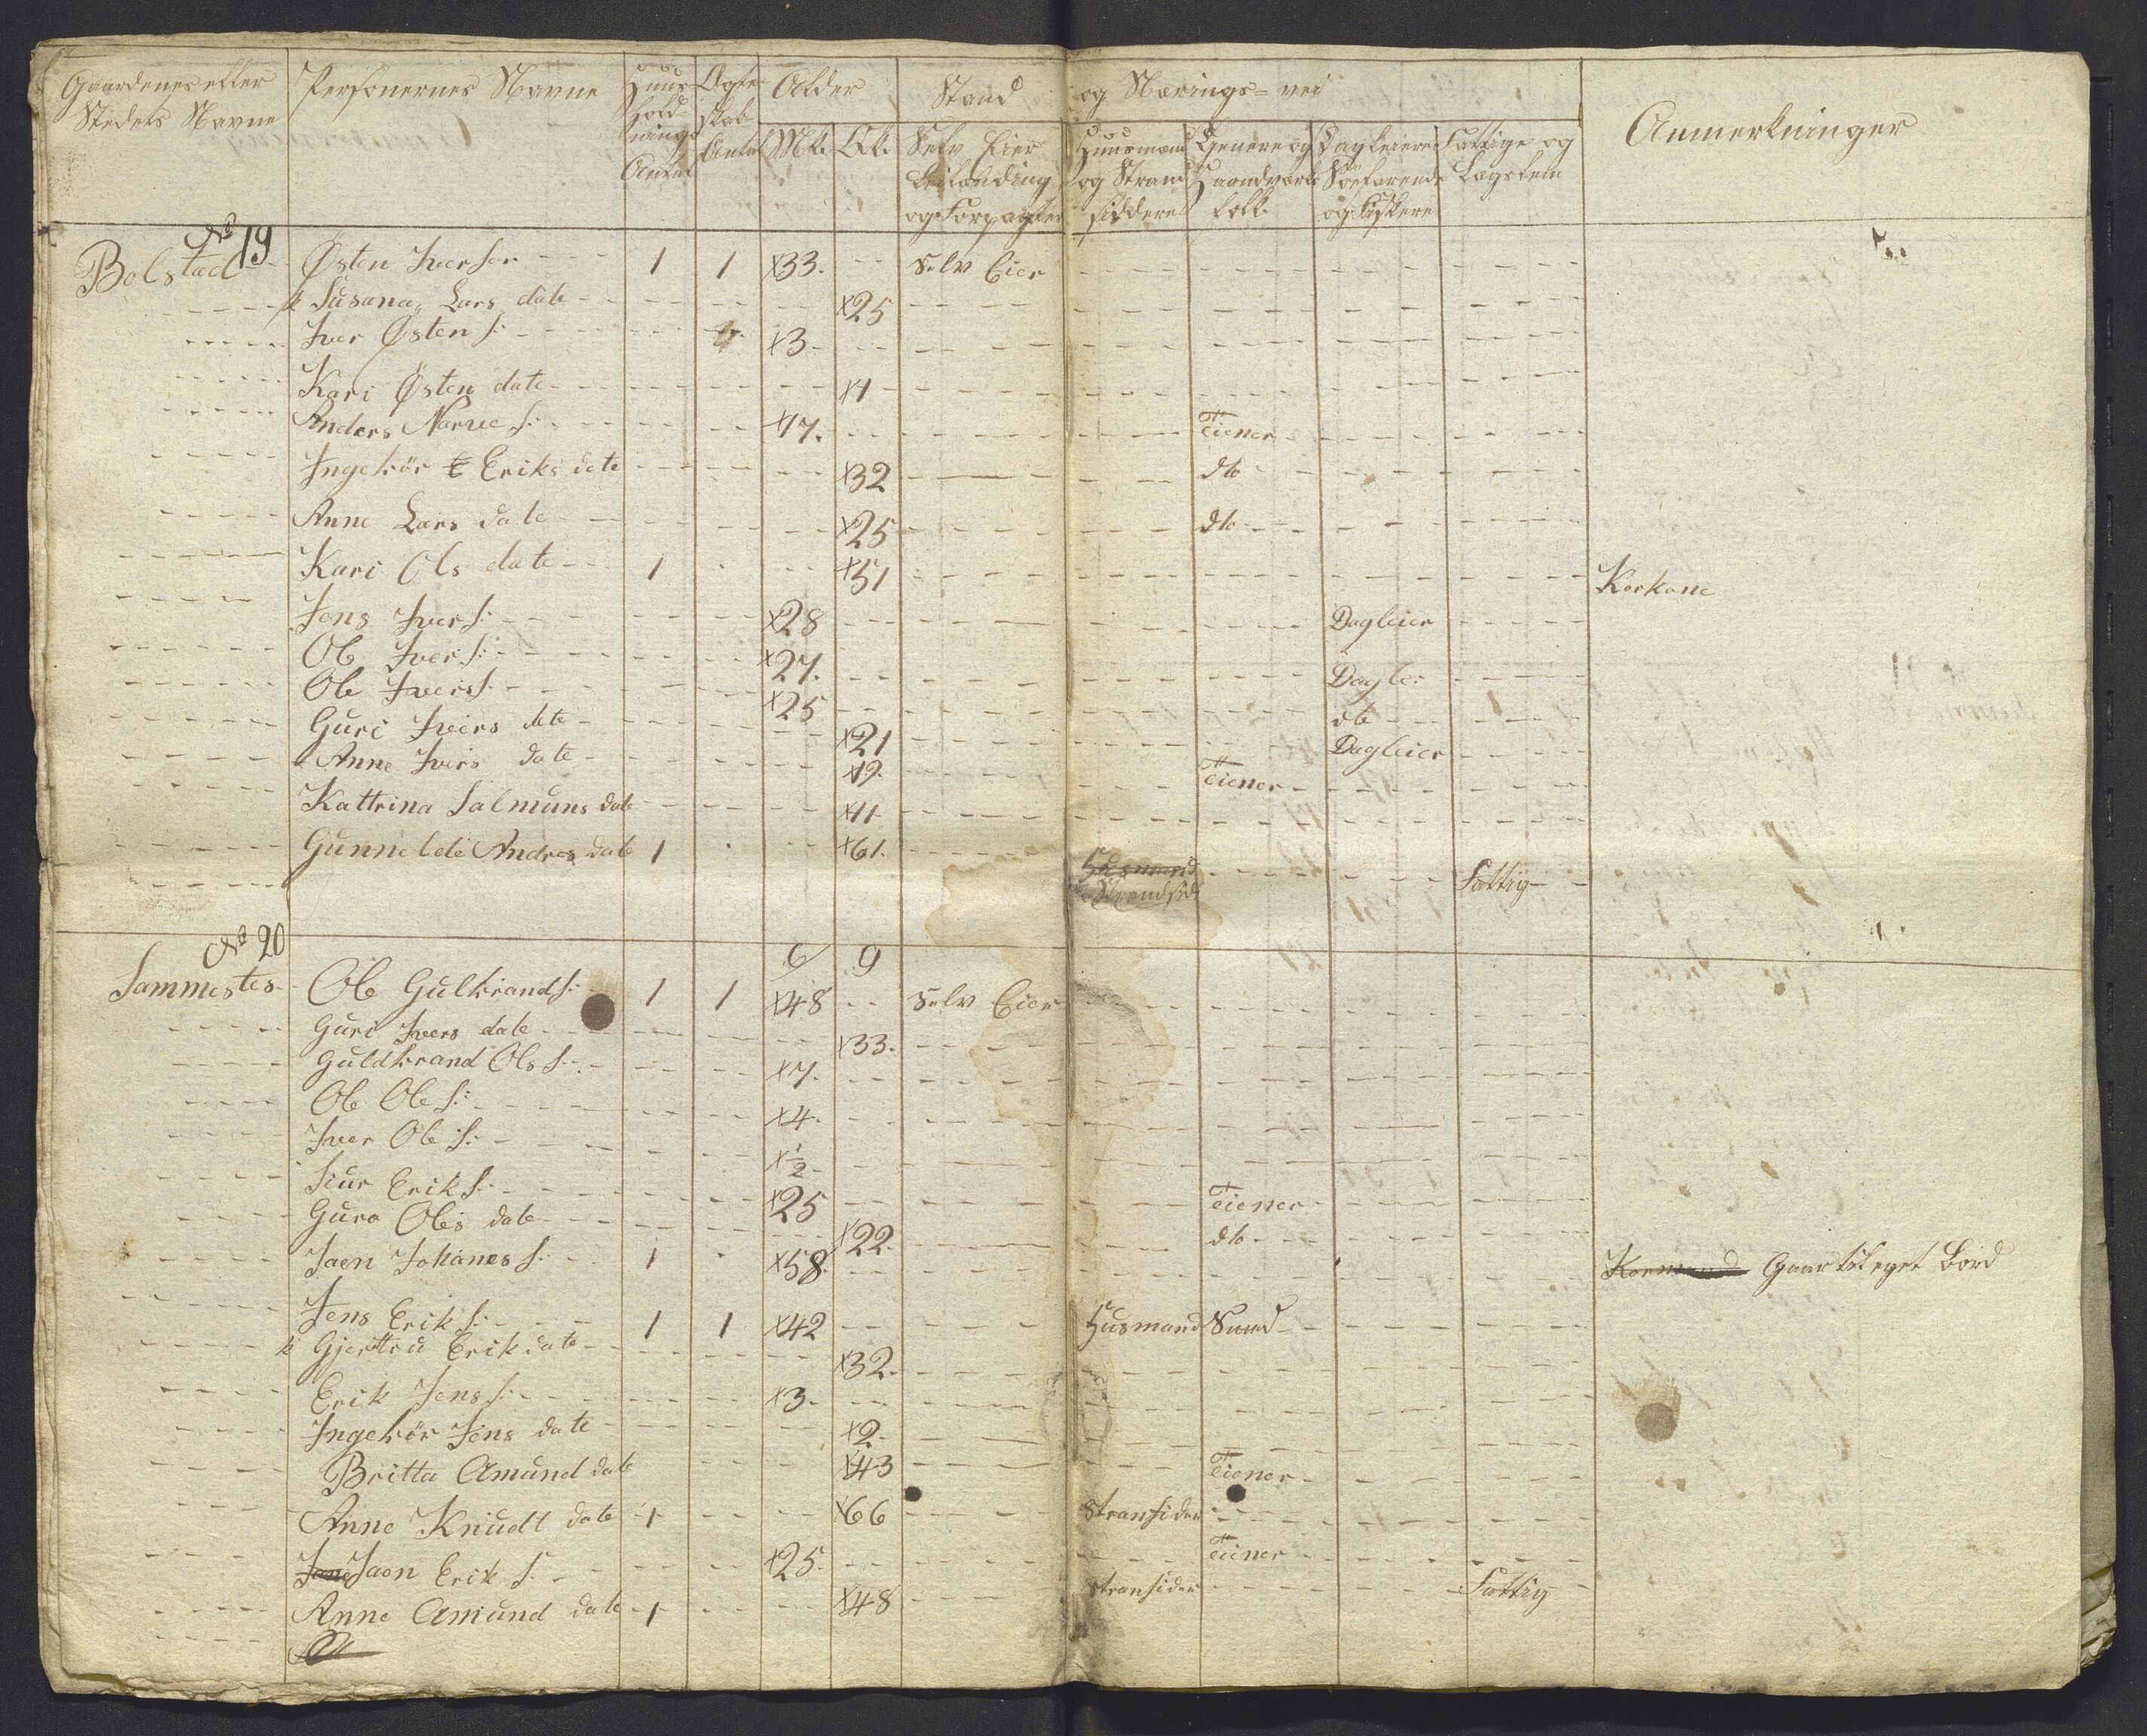 Gaardenes eller Stedets Navne
Personernes Navne
Huus holdnings Antal
Ægte skab Antal
Alder
Mk. Qk.
Stand og Nærings-vei
Selv Eier Leilænding og Forpagter
Huusmænd og Strand sidderes
Tienere og Haandværks folk
Dagleiere Søefarende og Fiskere
Fattige og Lægslem
Anmerkninger
No 19
Bolstad Østen Iversen 1 1 x33. Selv Eier
k Susana Lars date x25
Iver Østen s: x3
Kari Østen date x1
Anders Narve s: x17. Tiener
Ingebór Eriks date x32 dto
Anne Lars date x25 dto
Kari Ols date 1 x51 Korkone
Jens Iver s: x28 Dagleier
Ole Iver s: x27. Dagle:
Ole Ivers s. x25 dto
Guri Ivers date x21 Dagleier
Anne Ivers date x19. Tiener
Kattrina Salmuns date x11
Gunnelde Andres date 1 x61. Husmand Strandsid Fattig
6 9
No 20
Sammestes Ole Gulbrands: 1 1 x48 Selv Eier
Guri Ivers date x33.
Guldbrand Ols s: x7.
Ole Ole s: x4.
Iver Ole s: x1/2
Siur Erik s: x25 Tiener
Guro Oles date x22. dto
Jaen Johanes s: 1 x58. Kormand Gaar til eget Bord
Jens Erik s: 1 1 x42 Husmand Smed
k Gjertru Erik date x32.
Erik Jens s: x3.
Ingebór Jens date x2
Britta Amund date x43 Tiener
Anne Knudt date 1 x66 Stransider
Jens Jaen Erik s. x25. Tiener
Anne Amund date 1 x48 Stransider Fattig